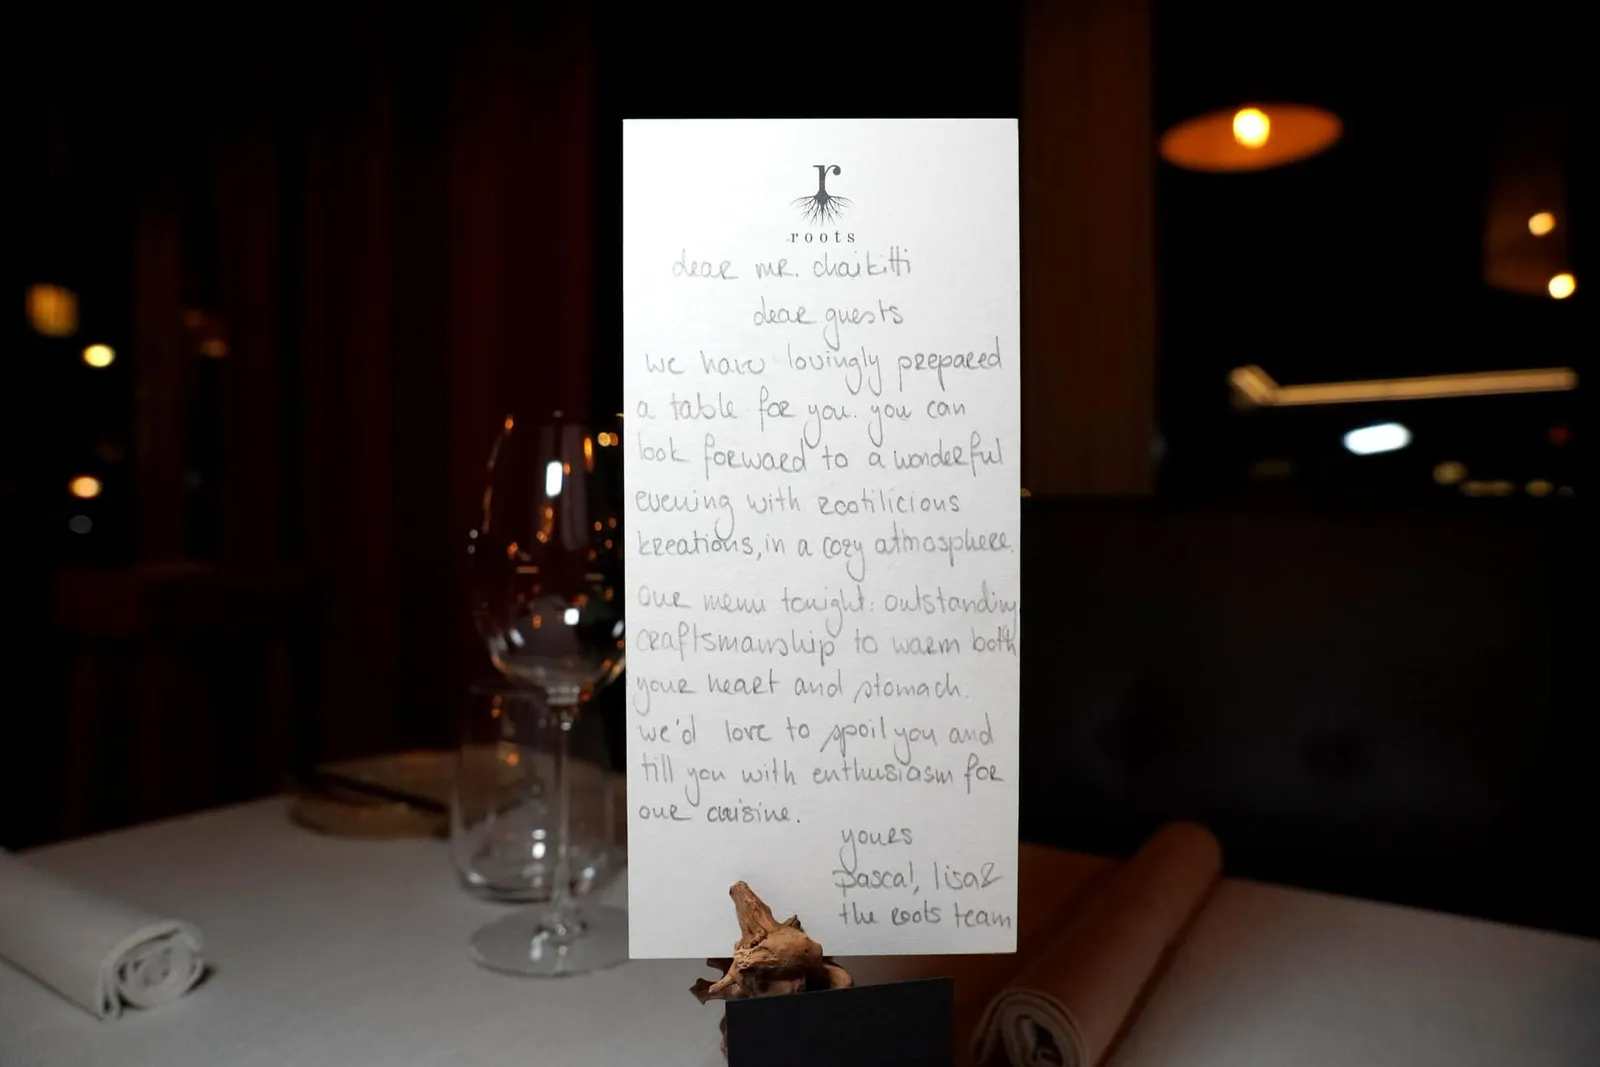 r
roots
dear mr. chaikitti
dear guests
we have lovingly prepared
a table for you. you can
look forward to a wonderful
evening with rootilicious
kreations, in a cozy atmosphere.
our menu tonight: outstanding
craftsmanship to warm both
your heart and stomach.
we'd love to spoil you and
till you with enthusiasm for
our cuisine.
yours
pascal, lisa &
the roots team